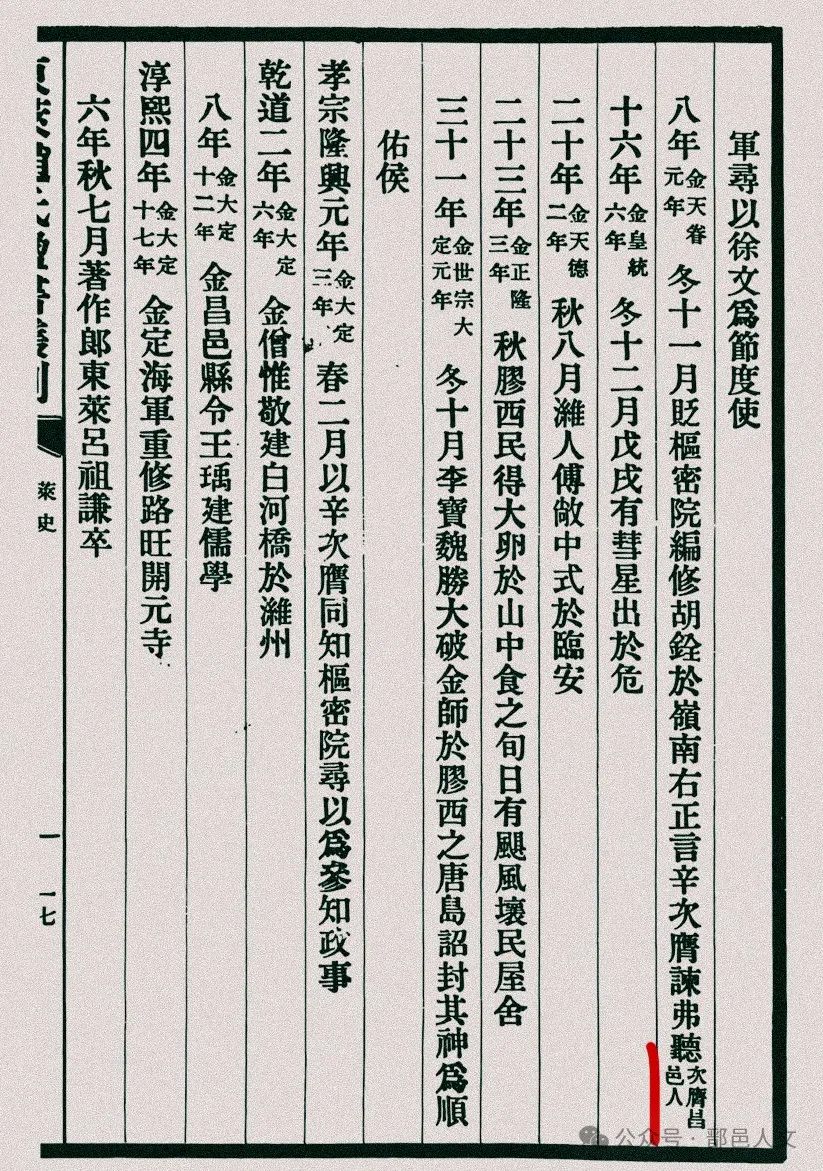 軍尋以徐文爲節度使
八年金天眷元年冬十一月貶樞密院編修胡銓於嶺南右正言辛次膺諫弗聽次膺昌邑人
十六年金皇統六年冬十二月戊戌有彗星出於危
二十年金天德二年秋八月濰人傅敞中式於臨安
二十三年金正隆三年秋膠西民得大卵於山中食之旬日有颶風壞民屋舍
三十一年金世宗大定元年冬十月李寶魏勝大破金師於膠西之唐島詔封其神爲順
佑侯
孝宗隆興元年金大定三年春二月以辛次膺同知樞密院尋以爲參知政事
乾道二年金大定六年金僧惟敬建白河橋於濰州
八年金大定十二年金昌邑縣令王瑀建儒學
淳熙四年金大定十七年金定海軍重修路旺開元寺
六年秋七月著作郎東萊呂祖謙卒
萊史
一 一七
公众号·鄑邑人文